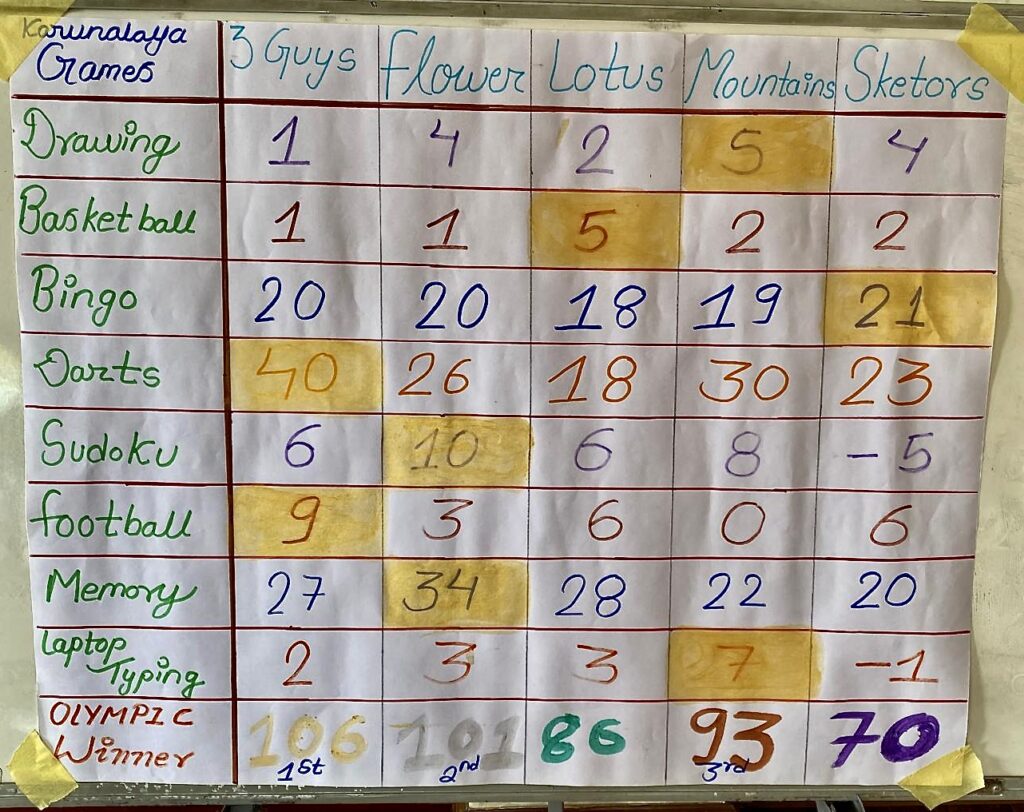 Karunalaya
Games 3 Guys Flower Lotus Mountains Sketors
Drawing 1 4 2 5 4
Basketball 1 1 5 2 2
Bingo 20 20 18 19 21
Darts 40 26 18 30 23
Sudoku 6 10 6 8 -5
football 9 3 6 0 6
Memory 27 34 28 22 20
laptop
Typing 2 3 3 7 -1
OlYMPIC
Winner 106 101 86 93 70
1st 2nd 3rd